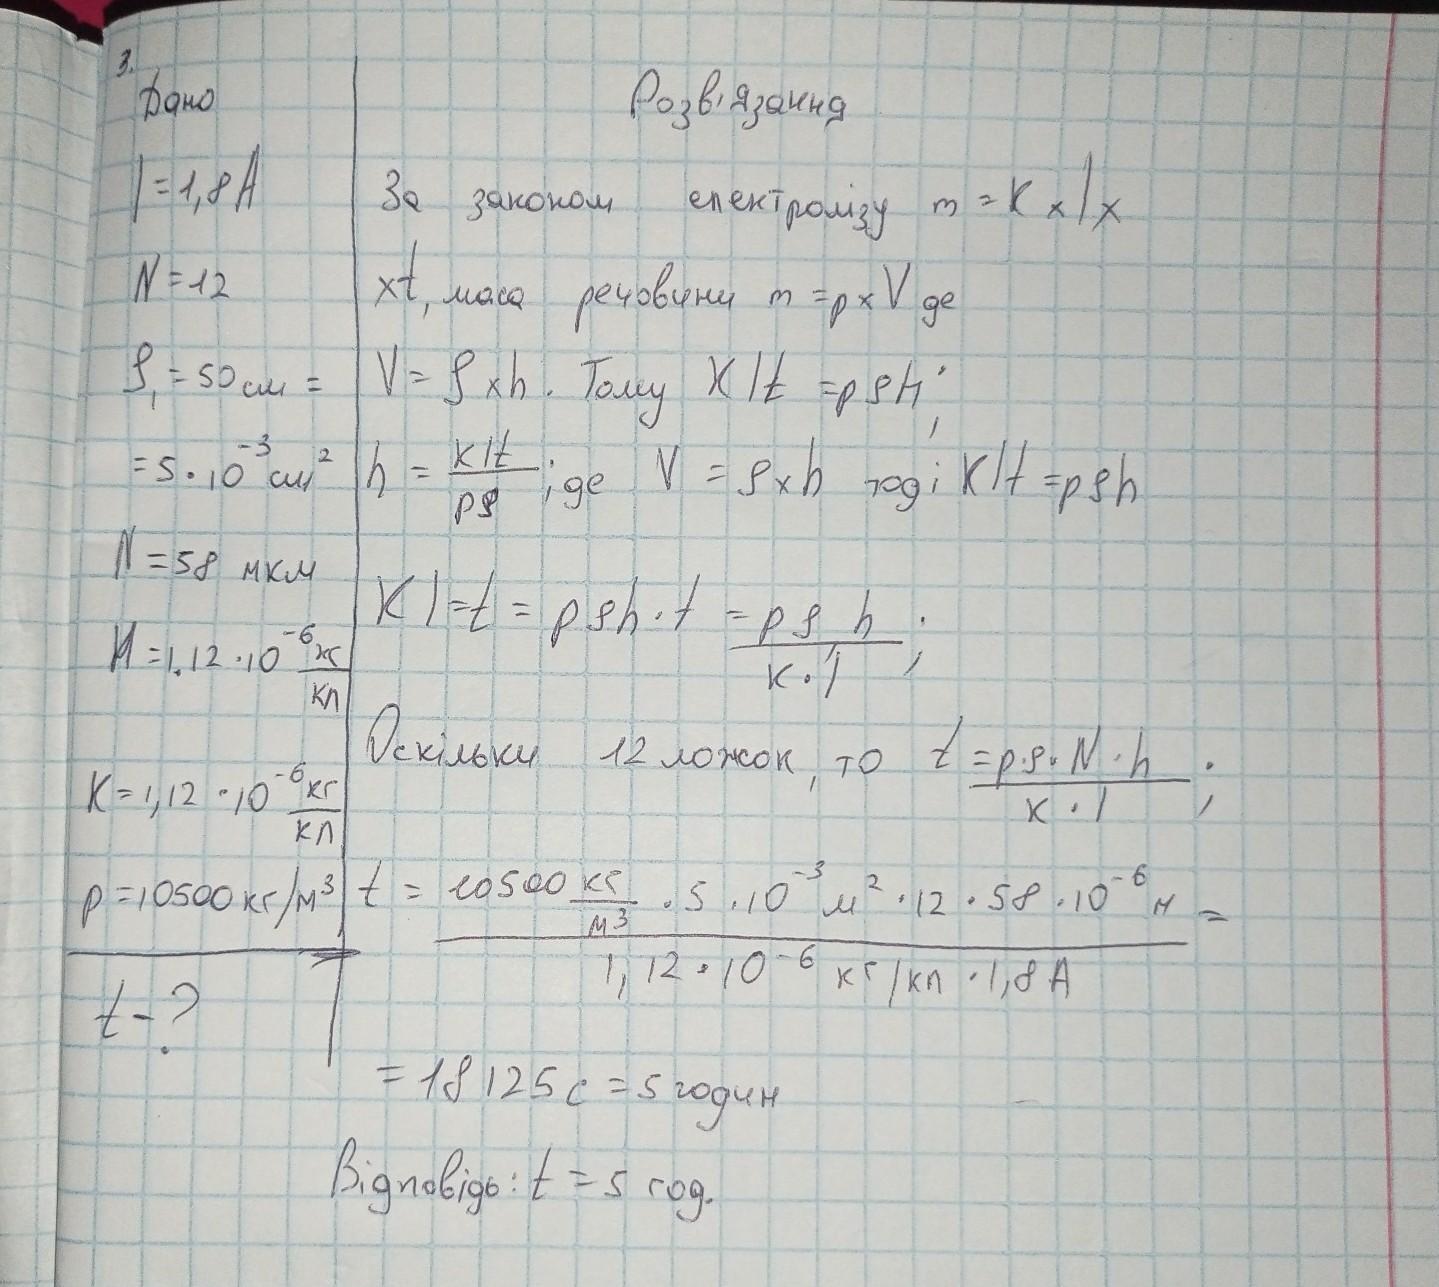 3.
Дано
I = 1,8 А
N = 12
S₁ = 50 см =
= 5 · 10⁻³ см²
N = 58 мкм
М = 1.12 · 10⁻⁶ кг/кл
К = 1,12 · 10⁻⁶ кг/кл
p = 10500 кг/м³
t - ?
Розв'язання
За законом електролізу m = K x I x
x t, маса речовини m = p x V де
V = S x h. Тому K I t = p S h;
h = K I t / p S ; де V = S x h тоді K I t = p S h
K I = t = p S h · t = p S h / к · I ;
Оскільки 12 ложок, то t = p · S · N · h / к · I ;
t = 10500 кг/м³ · 5 · 10⁻³ м² · 12 · 58 · 10⁻⁶ м / 1,12 · 10⁻⁶ кг/кл · 1,8 А =
= 18125 с = 5 годин
Відповідь: t = 5 год.